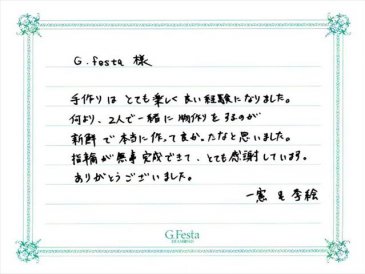 G.festa 様
手作りは とても楽しく良い経験になりました。
何より、2人で一緒に物作りをするのが
新鮮で本当に作って良かったなと思いました。
指輪が無事完成できて、とても感謝しています。
ありがとうございました。
一憲 & 李絵
G.Festa